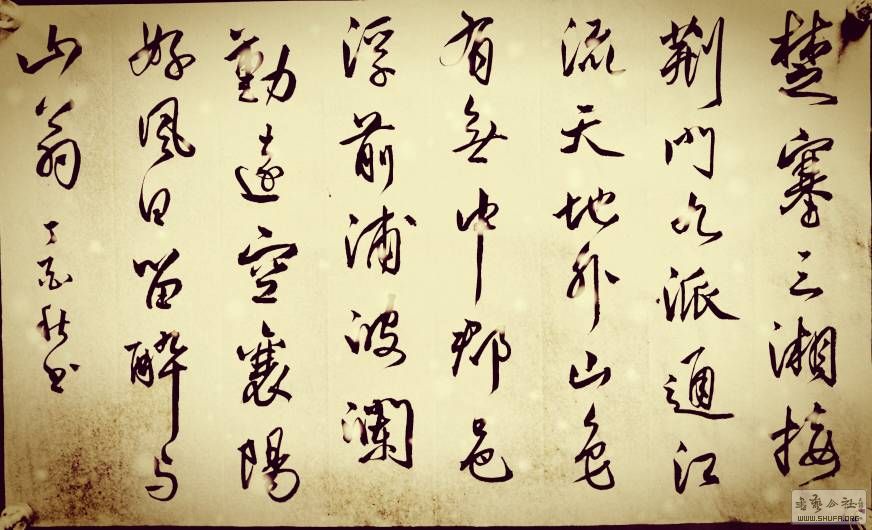 楚塞三湘接
荆门九派通江
流天地外山色
有無中郡邑
浮前浦波瀾
動遠空襄陽
好风日留醉与
山翁 丁酉秋书
书艺公社
WWW.SHUFA.ORG